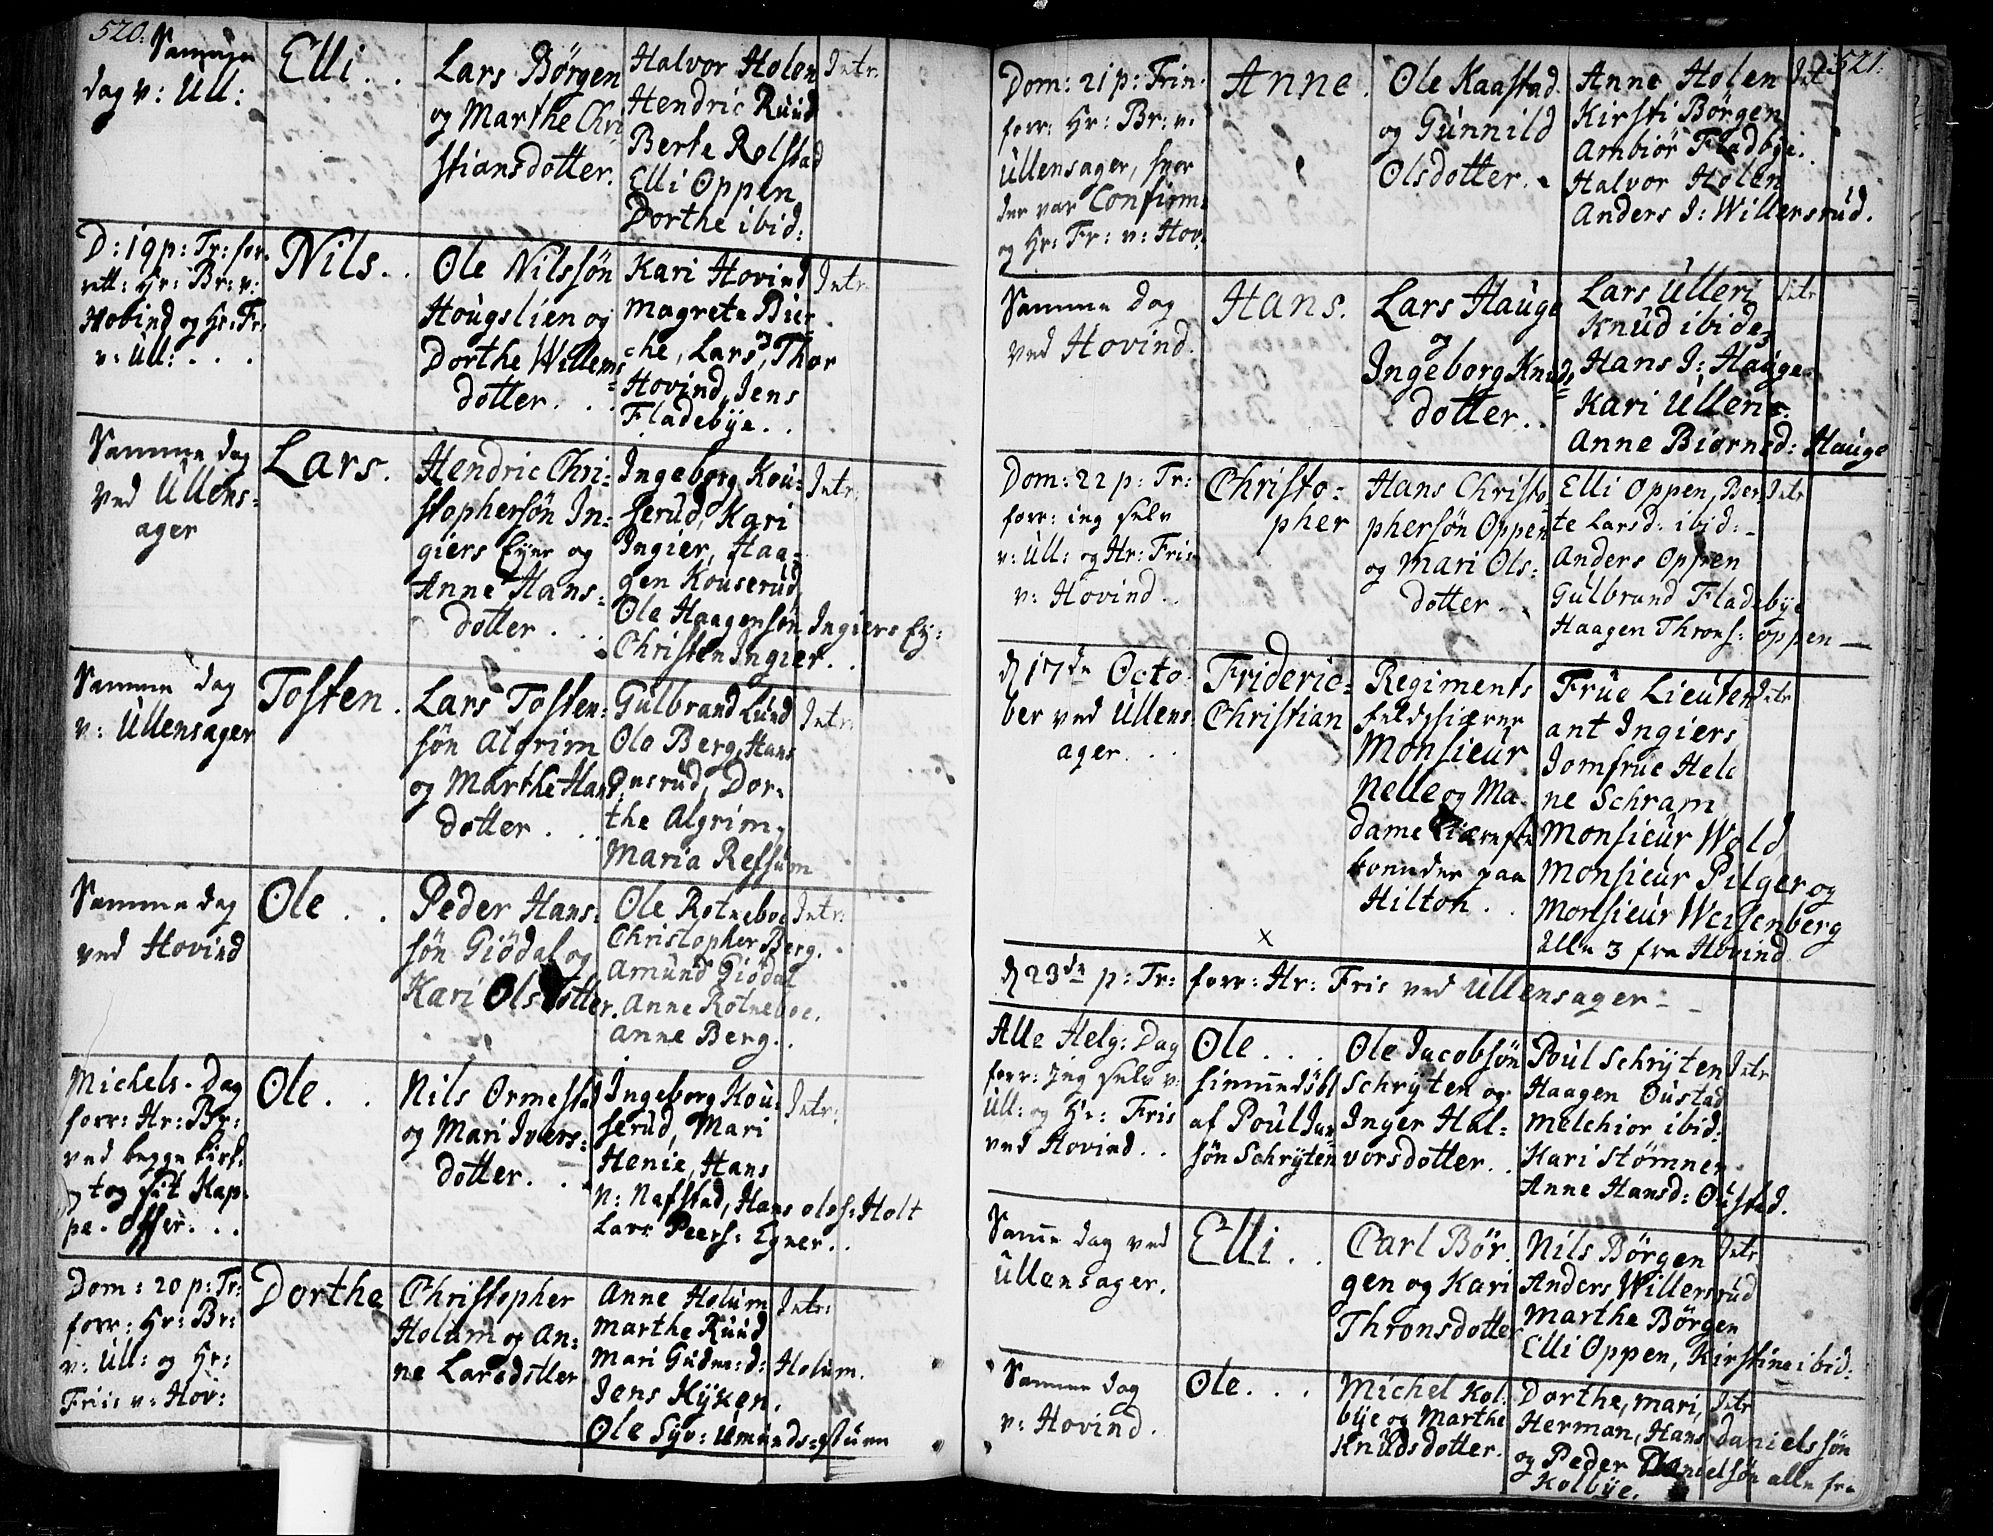 520.
Samme
dag v: Ull:
Elli . .
Lars Börgen
og Marthe Chri
stiansdotter.
Halvor Holen
Hendric Ruud
Berte Rolstad
Elli Oppen
Dorthe ibid:
Intr:
D: 19 p: Tr: for
rett: Hr: Br: v:
Hovind og Hr: Fr:
v: Ull: . . .
Nils. .
Ole Nilssön
Hougslien og
Dorthe Willems
dotter. . .
Kari Hovind
Magrete Bier
che, Lars, Thor
Hovind, Jens
Fladebye. .
Intr:
Samme dag
ved Ullens=
ager
Lars.
Hendric Chri=
stophersön In=
giers Eyer og
Anne Hans=
dotter . . .
Ingeborg Kou=
serud, Kari
Ingier, Haa=
gen Kouserud
Ole Haagensön Ingiers Ey:
Christen Ingier. .
Intr:
Samme dag
v: Ullensager
Tosten.
Lars Tosten=
sön Algrim
og Marthe Hans
dotter . . .
Gulbrand Lund
Ole Berg, Hans
Onsrud, Dor=
the Algrim,
Maria Refsum
Intr:
Samme dag
ved Hovind
Ole . .
Peder Hans=
sön Giödal og
Kari Olsdotter.
Ole Rotneboe
Christopher Berg.
Amund Giödal
Anne Rotneboe.
Anne Berg. .
Intr:
Michels-Dag
forr: Hr: Br:
ved begge Kirk:
og tog sit Kap=
pe-Offer. . .
Ole . .
Nils Ormestad
og Mari Ivers=
dotter. . .
Ingeborg Kou=
serud, Mari
Henie, Hans
N: Nafstad, Hans Olss: Holt
Lars Peers: Egner. .
Intr:
Dom: 20 p: Tr:
forr: Hr: Br:
v: Ull: og Hr:
Friis v: Hov:
Dorthe
Christopher
Holum og An=
ne Larsdotter
Anne Holum
Marthe Ruud
Mari Gudm: d: Holum.
Jens Kyken.
Ole Syv: Amunds=stuen
Intr:
521.
Dom: 21 p: Trin.
forr: Hr: Br: v:
Ullensager, hvor
der var Confirm:
og Hr: Fr: v: Hov.
Anne.
Ole Kaastad
og Gunnild
Olsdotter. .
Anne Holen
Kirsti Börgen
Ambiör Fladbye.
Halvor Holen
Anders I: Willersrud.
Int
Samme dag
ved Hovind.
Hans.
Lars Hauge
og
Ingeborg Knuds
dotter. .
Lars Ulleri
Knud ibide
Hans I: Hauge
Kari Ulleri.
Anne Biörnsd: Hauge
Intr
Dom: 22 p: Tr:
forr: ieg selv
v: Ull: og Hr: Friis
v: Hovind. .
Christo=
pher
Hans Christo
phersön Oppen
og Mari Ols=
dotter . .
Elli Oppen, Ber=
te Larsd: ibid:
Anders Oppen
Gulbrand Fladebye
Haagen Throns: Oppen —
Intr
d 17de Octo
ber ved Ullens
ager. . .
Frideric=
Christian
Regiments
feldskiærer
Monsieur
Nelle og Ma
dame Kiæreste
boende paa
Hilton. . .
Frue Lieuten
ant Ingiers
Jomfrue Hele
ne Schram
Monsieur Wold
Monsieur Pilger og
Monsieur Weisenberg
alle 3 fra Hovind
Intr
x
d 23de p: Tr: forr: Hr: Friis ved Ullensager—
Alle Helg: Dag
forr: Jeg selv v:
Ull: og Hr: Friis
ved Hovind. .
Ole. . .
hiemmedöbt
af Poul Jan
sön Schryten
Ole Jacobsön
Schryten og
Inger Hal=
vorsdotter. .
Poul Schryten
Haagen Oustad
Melchior ibid:
Kari Stömner
Anne Hansd: Oustad.
Intr
Same dag ved
Ullensager.
Elli. .
Carl Bör.
gen og Kari
Thronsdotter
Nils Börgen
Anders Willersrud
Marthe Börgen
Elli Oppen, Kirstine ibid:
Intr
Samme dag
v: Hovind.
Ole. . .
Michel Kol
bye og Marthe
Knudsdotter.
Dorthe, Mari,
Herman, Hans Danielssön
og Peder Danielsön alle fra
Kolbye.
Intr